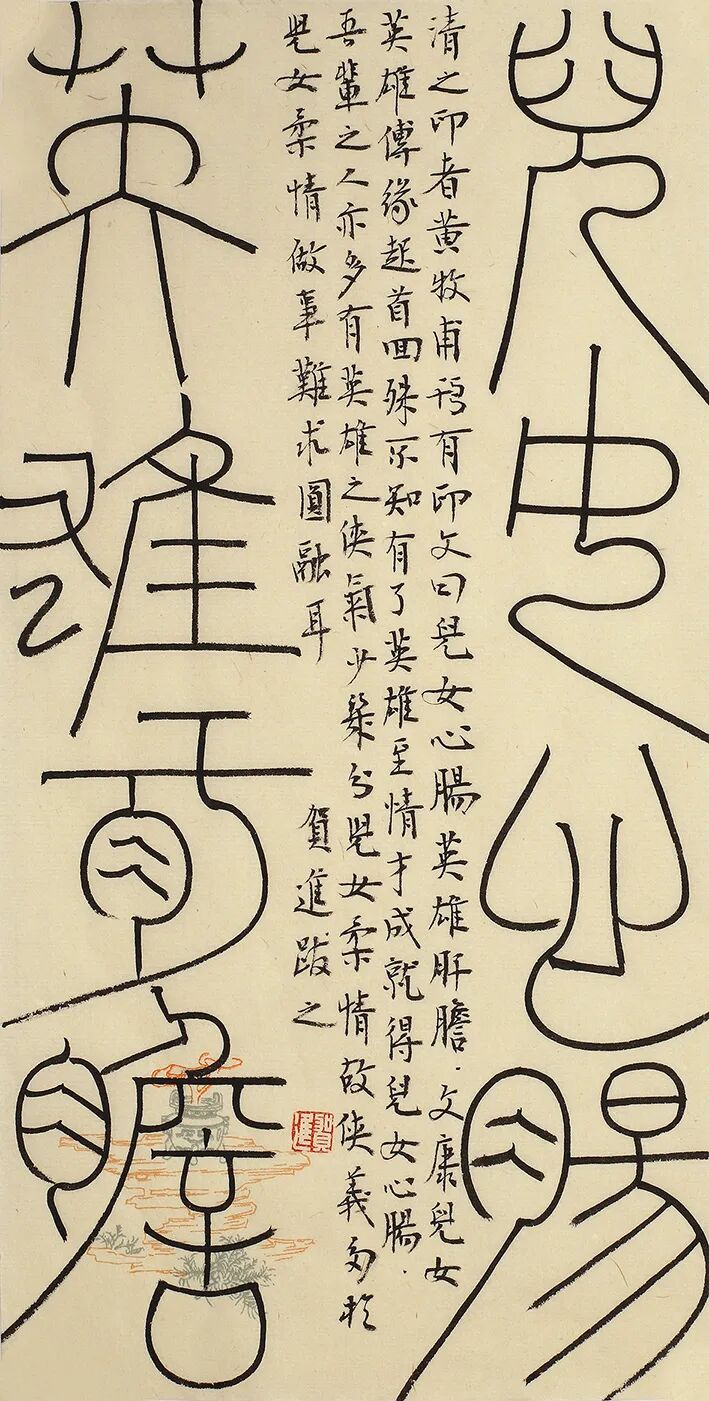 兒女心腸
清之印者黄牧甫有印文曰兒女心腸英雄肝膽.文康兒女
英雄傳緣起首回殊不知有了英雄至情才成就得兒女心腸.
吾輩之人亦多有英雄之俠氣少幾分兒女柔情故俠義多於
兒女柔情做事難求圓融耳
賀進跋之
賀進
英雄肝膽